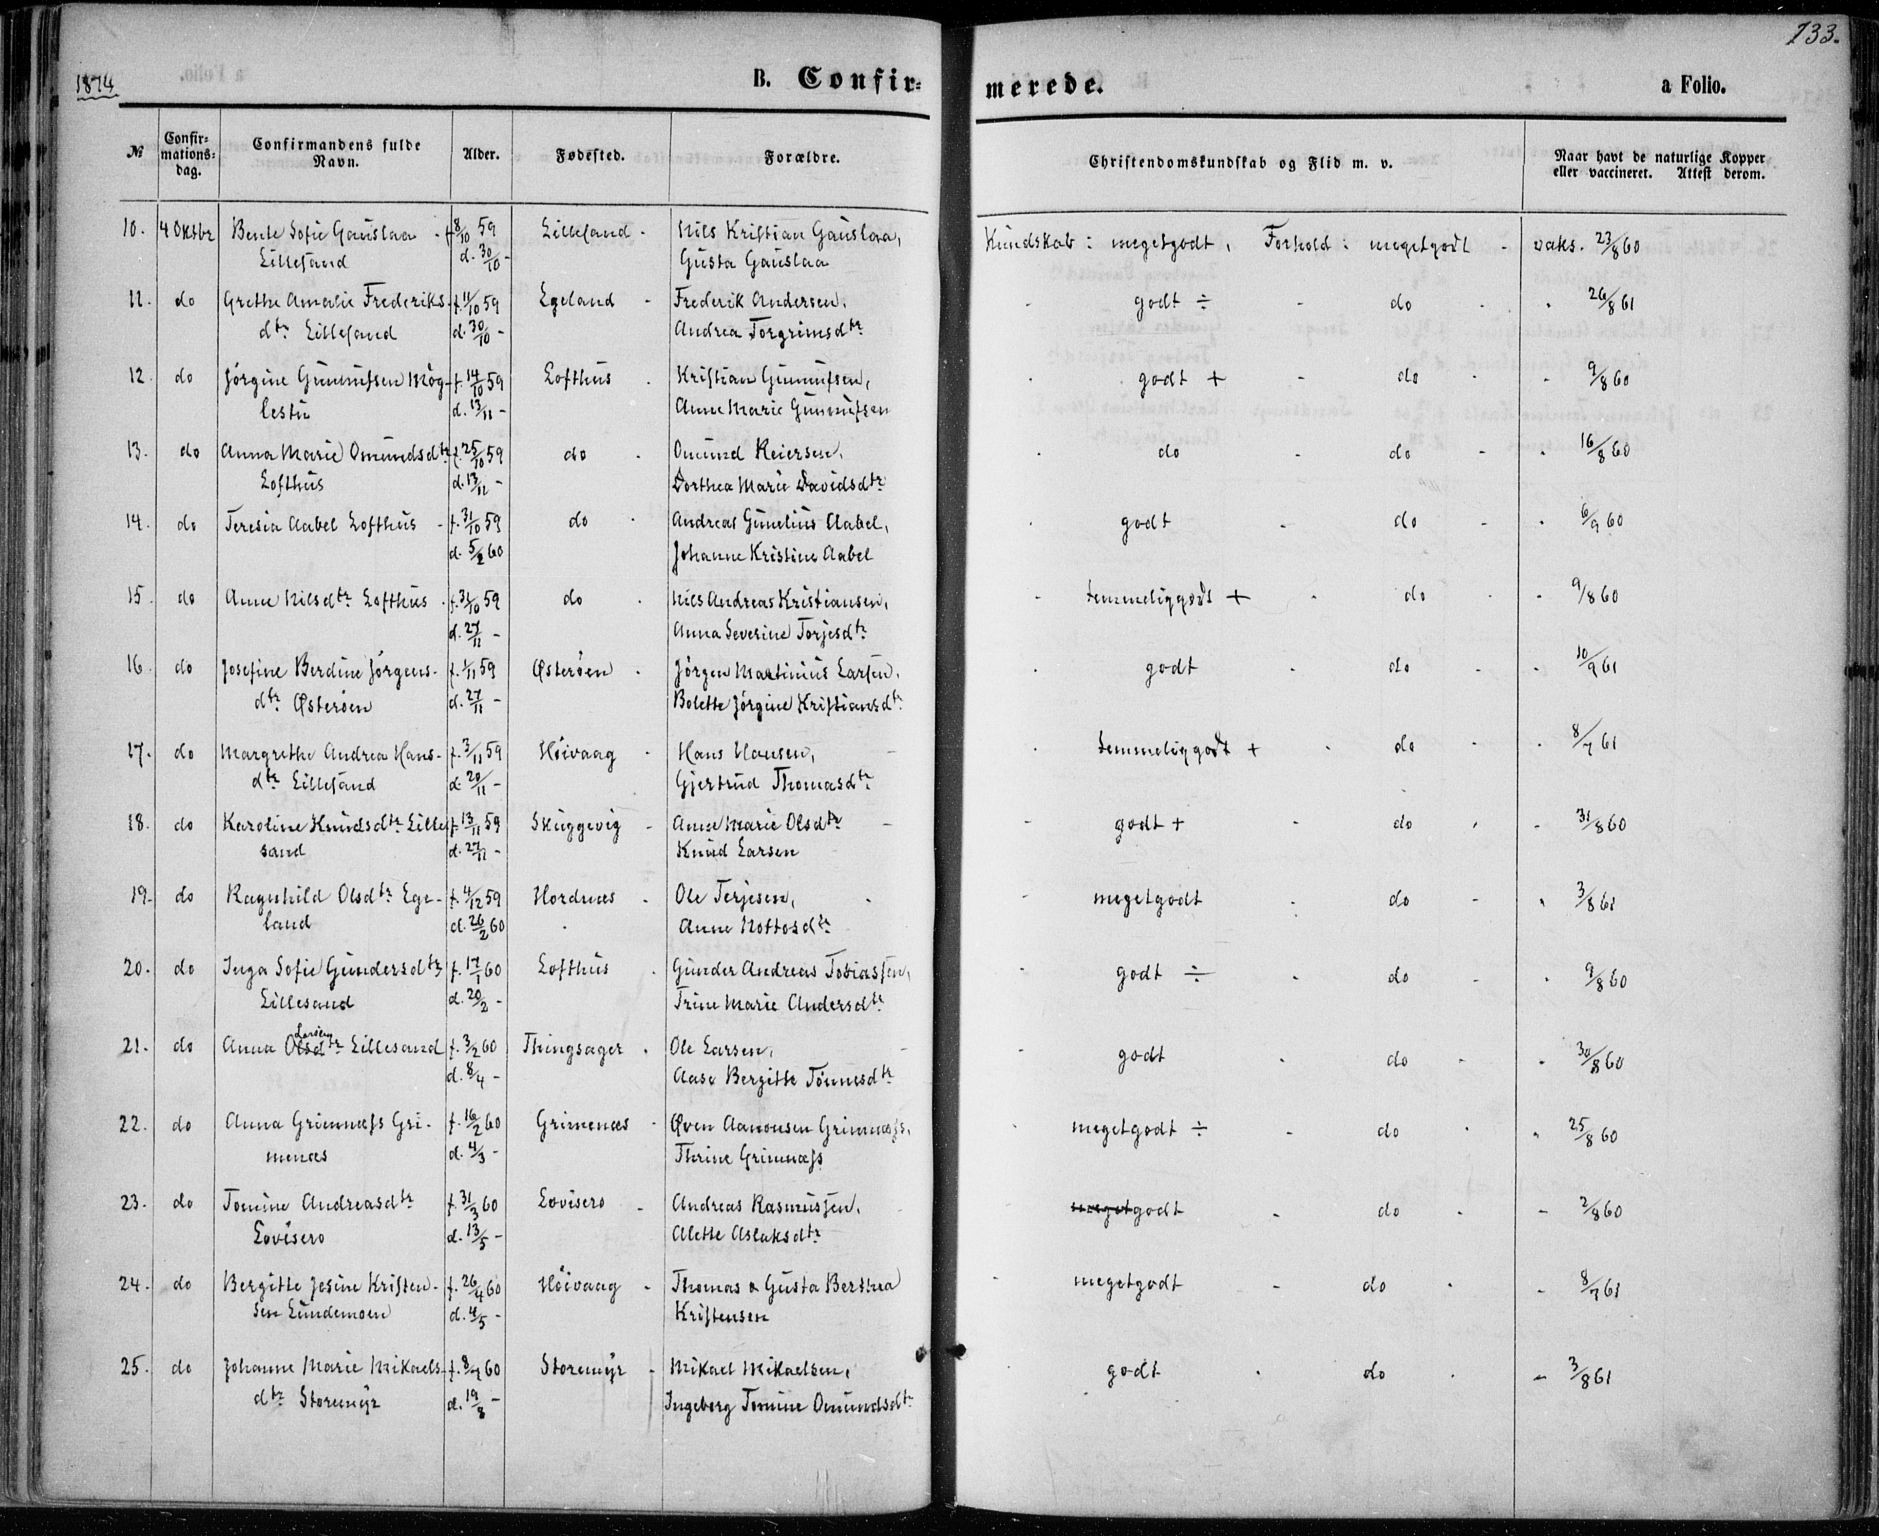 133.
1874
B. Confir=
merede.
a Folio.
№
Confir=
mations=
dag.
Confirmandens fulde
Navn.
Alder.
Fødested.
Forældre.
Christendomskundskab og Flid m. v.
Naar havt de naturlige Kopper
eller vaccineret. Attest derom.
10. 4 Oktbr Bente Sofie Gauslaa f 8/10 59 Lillesand - Nils Kristian Gauslaa, Kundskab: megetgodt, Forhold: megetgodt - vaks. 23/8 60
Lillesand d. 30/10 - Gusta Gauslaa
11. do Grethe Amalie Frederiks- f. 11/10 59 Egeland - Frederik Andersen, - godt ÷ - do - " 26/8 61
dtr Lillesand d. 30/10 - Andrea Torgrimsdtr
12. do Jörgine Gunnufsen Mög- f. 14/10 59 Lofthus - Kristian Gunnufsen, - godt + - do - " 9/8 60
lestu d. 13/11 - Anne Marie Gunnufsen
13. do Anna Marie Omundsdtr f. 25/10 59 do - Omund Reiersen, - do - do - " 16/8 60
Lofthus d. 13/11 - Dorthea Marie Davidsdtr
14. do Teresia Aabel Lofthus - f. 31/10 59 do - Andreas Gunelius Aabel, - godt - do - " 6/9 60
d. 5/2 60 Johanne Kristine Aabel
15. do Anne Nilsdtr Lofthus - f. 31/10 59 do - Nils Andreas Kristiansen, - temmeliggodt + - do - " 9/8 60
d. 27/11 - Anna Severine Torjesdtr
16. do Josefine Berdine Jörgens- f. 1/11 59 Østeröen - Jörgen Martinius Larsen, - godt - do - " 10/9 61
dtr Østeröen d. 27/11 - Bolette Jörgine Kristiansdtr
17. do Margrethe Andrea Hans- f. 3/11 59 Höivaag - Hans Hansen, - temmeliggodt + - do - " 8/7 61
dtr Lillesand d. 20/11 - Gjertrud Thomasdtr
18. do Karoline Knudsdtr Lille f. 13/11 59 Skuggevig - Anne Marie Olsdtr - godt + - do - " 31/8 60
sand d. 27/11 - Knud Larsen
19. do Ragnhild Olsdtr Ege- f. 4/12 59 Hordnæs - Ole Terjesen, - megetgodt - do - " 3/8 61
land d. 26/2 60 Anne Nottosdtr
20. do Inga Sofie Gundersdtr f. 17/1 60 Lofthus - Gunder Andreas Tobiassen, - godt ÷ - do - " 9/8 60
Lillesand d. 20/2 - Trine Marie Andersdtr
Larsen
21. do Anna Olsdtr Lillesand f. 3/2 60 Thingsager - Ole Larsen, - godt - do - " 30/8 60
d. 8/4 - Aase Bergitte Tönnesdtr
22. do Anna Grimnæss Gri- f. 16/2 60 Grimenæs - Øven Aanonsen Grimnæss, - megetgodt ÷ - do - " 25/8 60
menæs d. 4/3 - Therine Grimnæss
23. do Tomine Andreasdtr f. 31/3 60 Lovisero - Andreas Rasmussen, - megetgodt - do - " 2/8 60
Lovisero d. 13/5 - Alette Aslaksdtr
24. do Bergitte Josine Kristen- f. 26/4 60 Höivaag - Thomas & Gusta Berthea - megetgodt - do - " 8/7 61
sen Lundemoen d. 4/5 - Kristensen
25. do Johanne Marie Mikaels- f. 8/7 60 Storemyr - Mikael Mikaelsen, godt - do - " 3/8 61
dtr Storemyr d. 19/8 - Ingeborg Tomine Omundsdtr